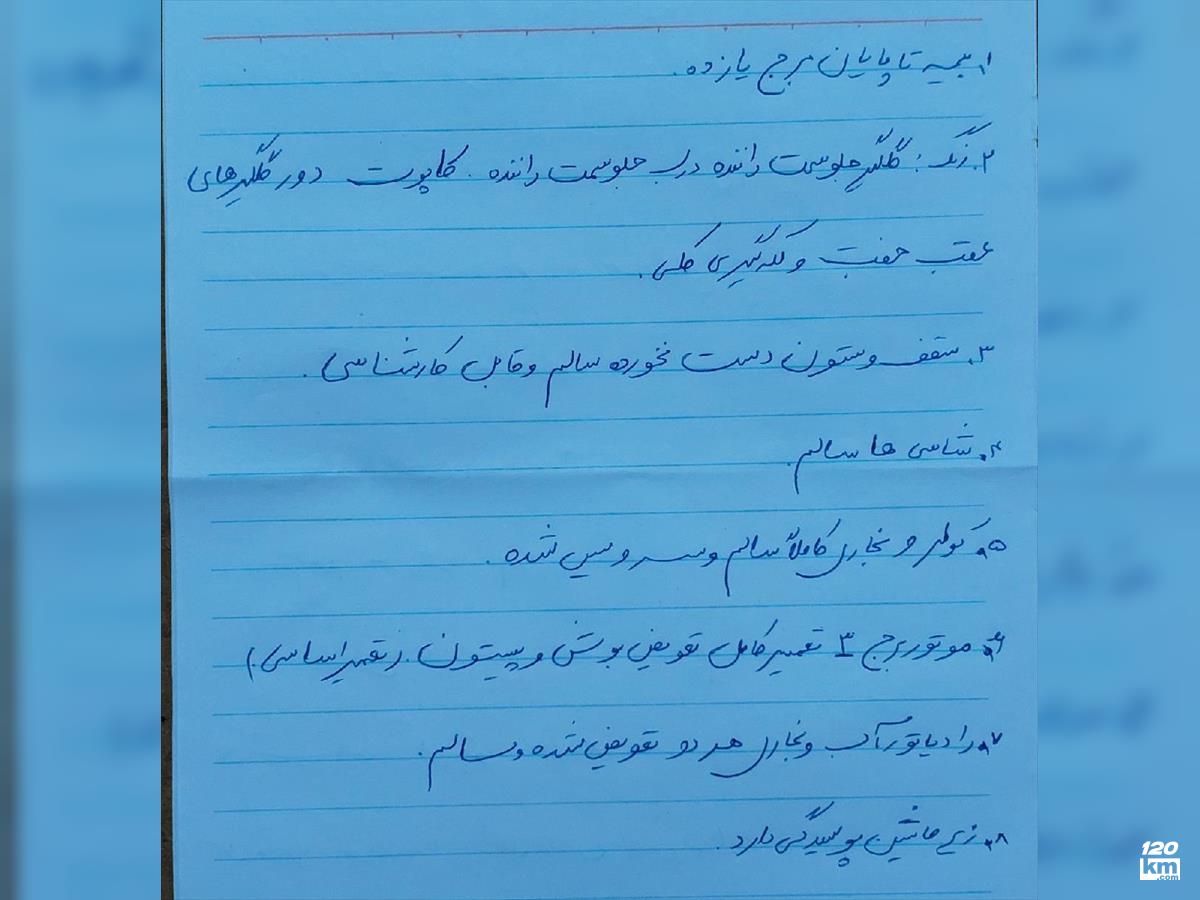 ۱. بیمه تا پایان برج یازده.
۲. رنگ: گلگیر جلو سمت راننده درب جلو سمت راننده. کاپوت دور گلگیرهای
عقب جفت و لکه‌گیری کلی.
۳. سقف و ستون دست نخورده سالم و قابل کارشناسی.
۴. شاسی ها سالم.
۵. کولر و بخاری کاملاً سالم و سرویس شده.
۶. موتور برج ۳ تعمیر کامل تعویض بوش و پیستون. (تعمیر اساسی.)
۷. رادیاتور آب و بخاری هر دو تعویض شده و سالم.
۸. زیر ماشین پوسیدگی دارد.
120
km
.com